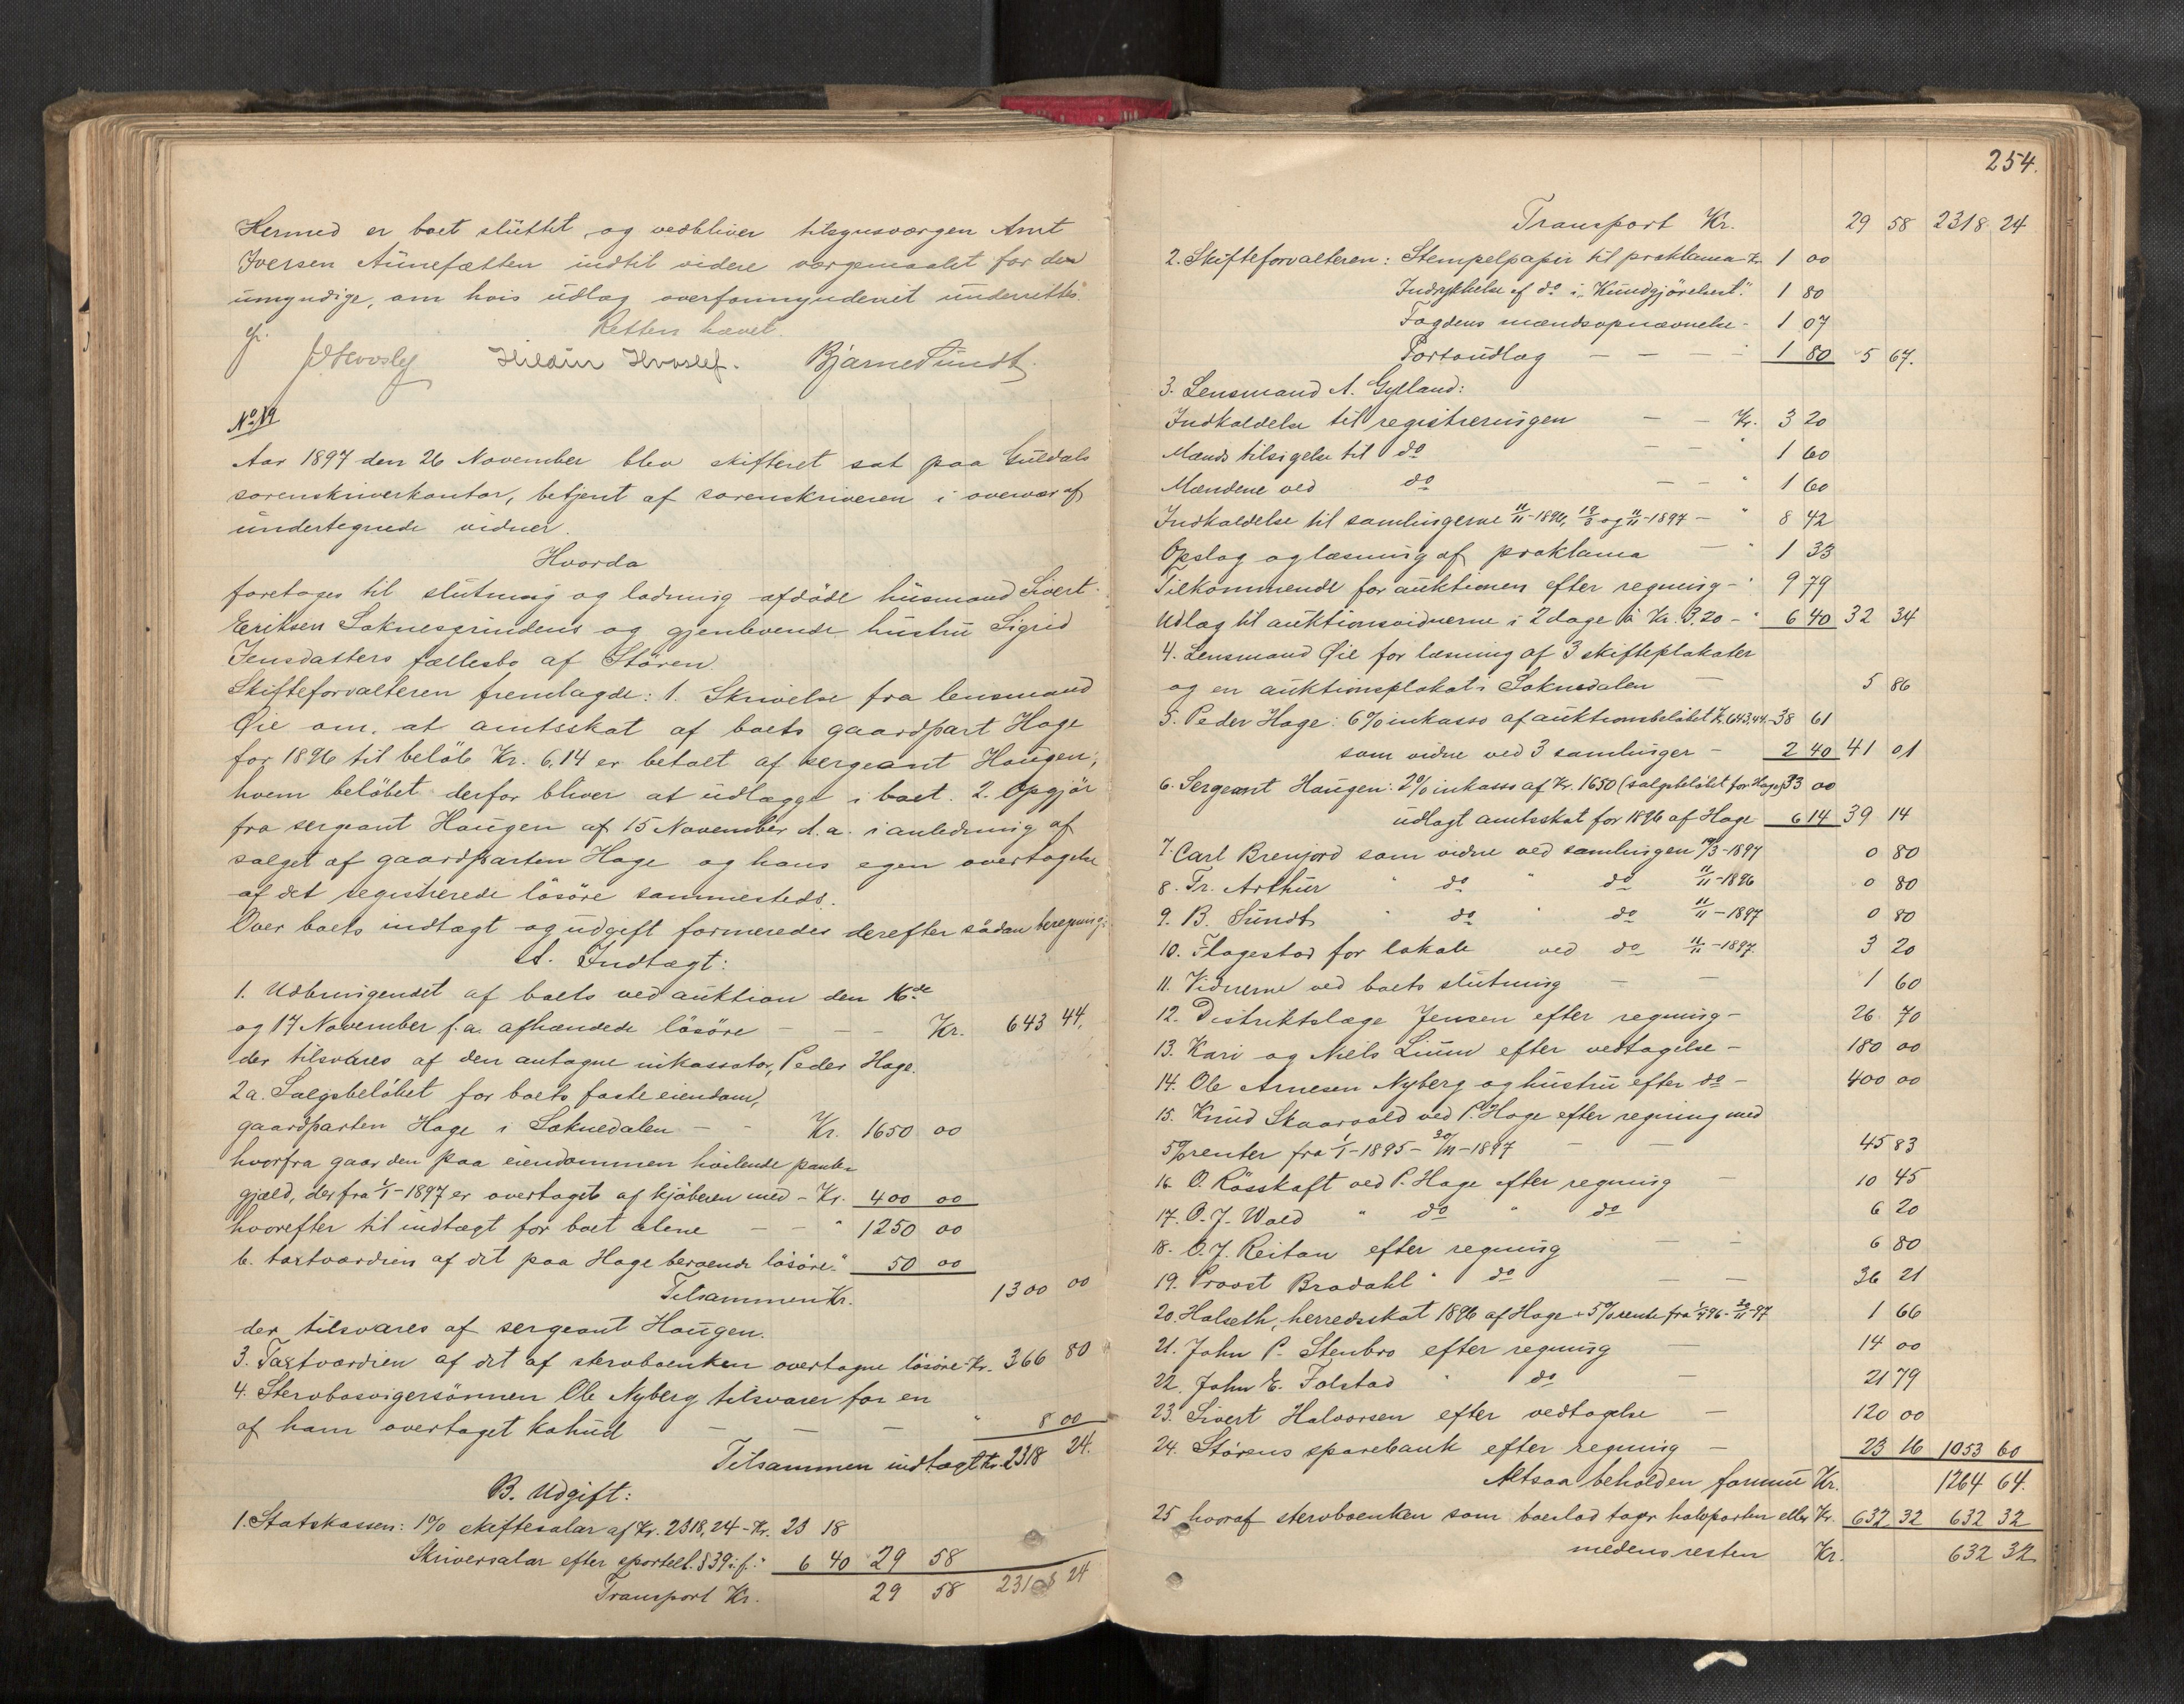 Hermed er boet sluttet, og vedbliver tilsynsværgen Arnt
Iversen Aunefætten indtil videre værgemaalet for den
umyndige, om hvis udlæg overformynderiet underrettes.
Retten hævet.
Hvoslef Hildur Hvoslef. Bjarne Sundt.
No. 19
Aar 1897 den 26 November blev skifteret sat paa Guldals
sorenskriverkontor, betjent af sorenskriveren i overvær af
undertegnede vidner.
Hvorda
foretoges til slutning og lodning afdöde husmand Sivert
Eriksen Soknesgrindens og gjenlevende hustru Sigrid
Jensdatters fællesbo af Stören.
Skifteforvalteren fremlagde: 1. Skrivelse fra lensmand
Øie om, at amtsskat af boets gaardpart Hage
for 1896 til beløb Kr. 6.14 er betalt af sergeant Haugen,
hvem belöbet derfor bliver at udlægge i boet. 2. Opgjör
fra sergeant Haugen af 15 November d.a. i anledning af
salget af gaardparten Hage og hans egen overtagelse
af det registrerede lösöre sammesteds.
Over boets indtægt og udgift formeredes derefter sådan beregning:
A. Indtægt:
1. Udbringendet af boets ved auktion den 16de
og 17 November f.a. afhændede lösöre - - - Kr. 643 44.
der tilsvares af den antagne inkassator, Peder Hage.
2a. Salgsbelöbet for boets faste eiendom,
gaardparten Hage i Soknedalen - - Kr. 1650 00
hvorfra gaar den paa eiendommen hvilende pante-
gjæld, der fra 1/1-1897 er overtaget af kjöberen med - Kr. 400 00
hvorefter til indtægt for boet alene - - " 1250 00
b. taxtværdien af det paa Hage beroende lösöre " 50 00
Tilsammen Kr. 1300 00
der tilsvares af sergeant Haugen.
3. Taxtværdien af det af stervboenken overtagne lösöre - Kr. 366 80
4. Stervbosvigersönnen Ole Nyberg tilsvarer for en
af ham overtaget kohud - - - " 8 00
Tilsammen indtægt Kr. 2318 24.
B. Udgift:
1. Statskassen: 1% skiftesalær af Kr. 2318,24 - Kr. 23 18
Skriversalær efter sportell. § 39 i.f. " 6 40 29 58
Transport Kr. 29 58 2318 24
254.
Transport Kr. 29 58 2318 24
2. Skifteforvalteren: Stempelpapir til proklama Kr. 1 00
Indrykkelse af do i "Kundgjörelsest." 1 80
Fogdens mændsopnævnelse - 1 07
Portoudlæg - - - - 1 80 5 67.
3. Lensmand A. Gylland:
Indkaldelse til registreringen - - Kr. 3 20
Mænds tilsigelse til do - " 1 60
Mændene ved do - - " 1 60
Indkaldelse til samlingerne 11/11-1896, 19/3 og 11/11-1897 - " 8 42
Opslag og læsning af proklama - " 1 33
Tilkommende for auktionen efter regning - " 9 79
Udlæg til auktionsvidnerne i 2 dage à Kr. 3.20 - " 6 40 32 34
4. Lensmand Øie for læsning af 3 skifteplakater
og en auktionsplakat i Soknedalen - 5 86
5. Peder Hage: 6% inkasso af auktionsbelöbet Kr. 643,44 - 38 61
som vidne ved 3 samlinger - 2 40 41 01
6. Sergeant Haugen: 2% inkasso af Kr. 1650 (salgsbelöbet for Hage) 33 00
udlagt amtsskat for 1896 af Hage 6 14 39 14
7. Carl Brenjord som vidne ved samlingen 19/3-1897 0 80
8. Fr. Arthur " do " do 11/11-1896 0 80
9. B. Sundt " do " do 11/11-1897 0 80
10. Flagestad for lokale ved do 11/11-1897. 3 20
11. Vidnerne ved boets slutning - - 1 60
12. Distriktslæge Jensen efter regning - 26 70
13. Kari og Niels Lium efter vedtagelse - 180 00
14. Ole Arnesen Nyberg og hustru efter do - 400 00
15. Knud Skaarvold ved P. Hage efter regning med
5% renter fra 1/1-1895 - 20/11-1897 - - 45 83
16. O. Rösskaft ved P. Hage efter regning - 10 45
17. O. J. Wold " do " do 6 20
18. O. J. Reitan efter regning - - 6 80
19. Provst Bradahl " do - - 36 21
20. Halseth, herredsskat 1896 af Hage + 5% rente fra 1/4 96 - 20/11-97 1 66
21. John P. Stenbro efter regning - 14 00
22. John E. Folstad " do - 21 79
23. Sivert Halvorsen efter vedtagelse - 120 00
24. Størens sparebank efter regning - 23 16 1053 60
Altsaa beholden formue Kr. 1264 64.
25 hvoraf stervboenken som boeslod tager halvparten eller Kr. 632 32 632 32
medens resten Kr. 632 32